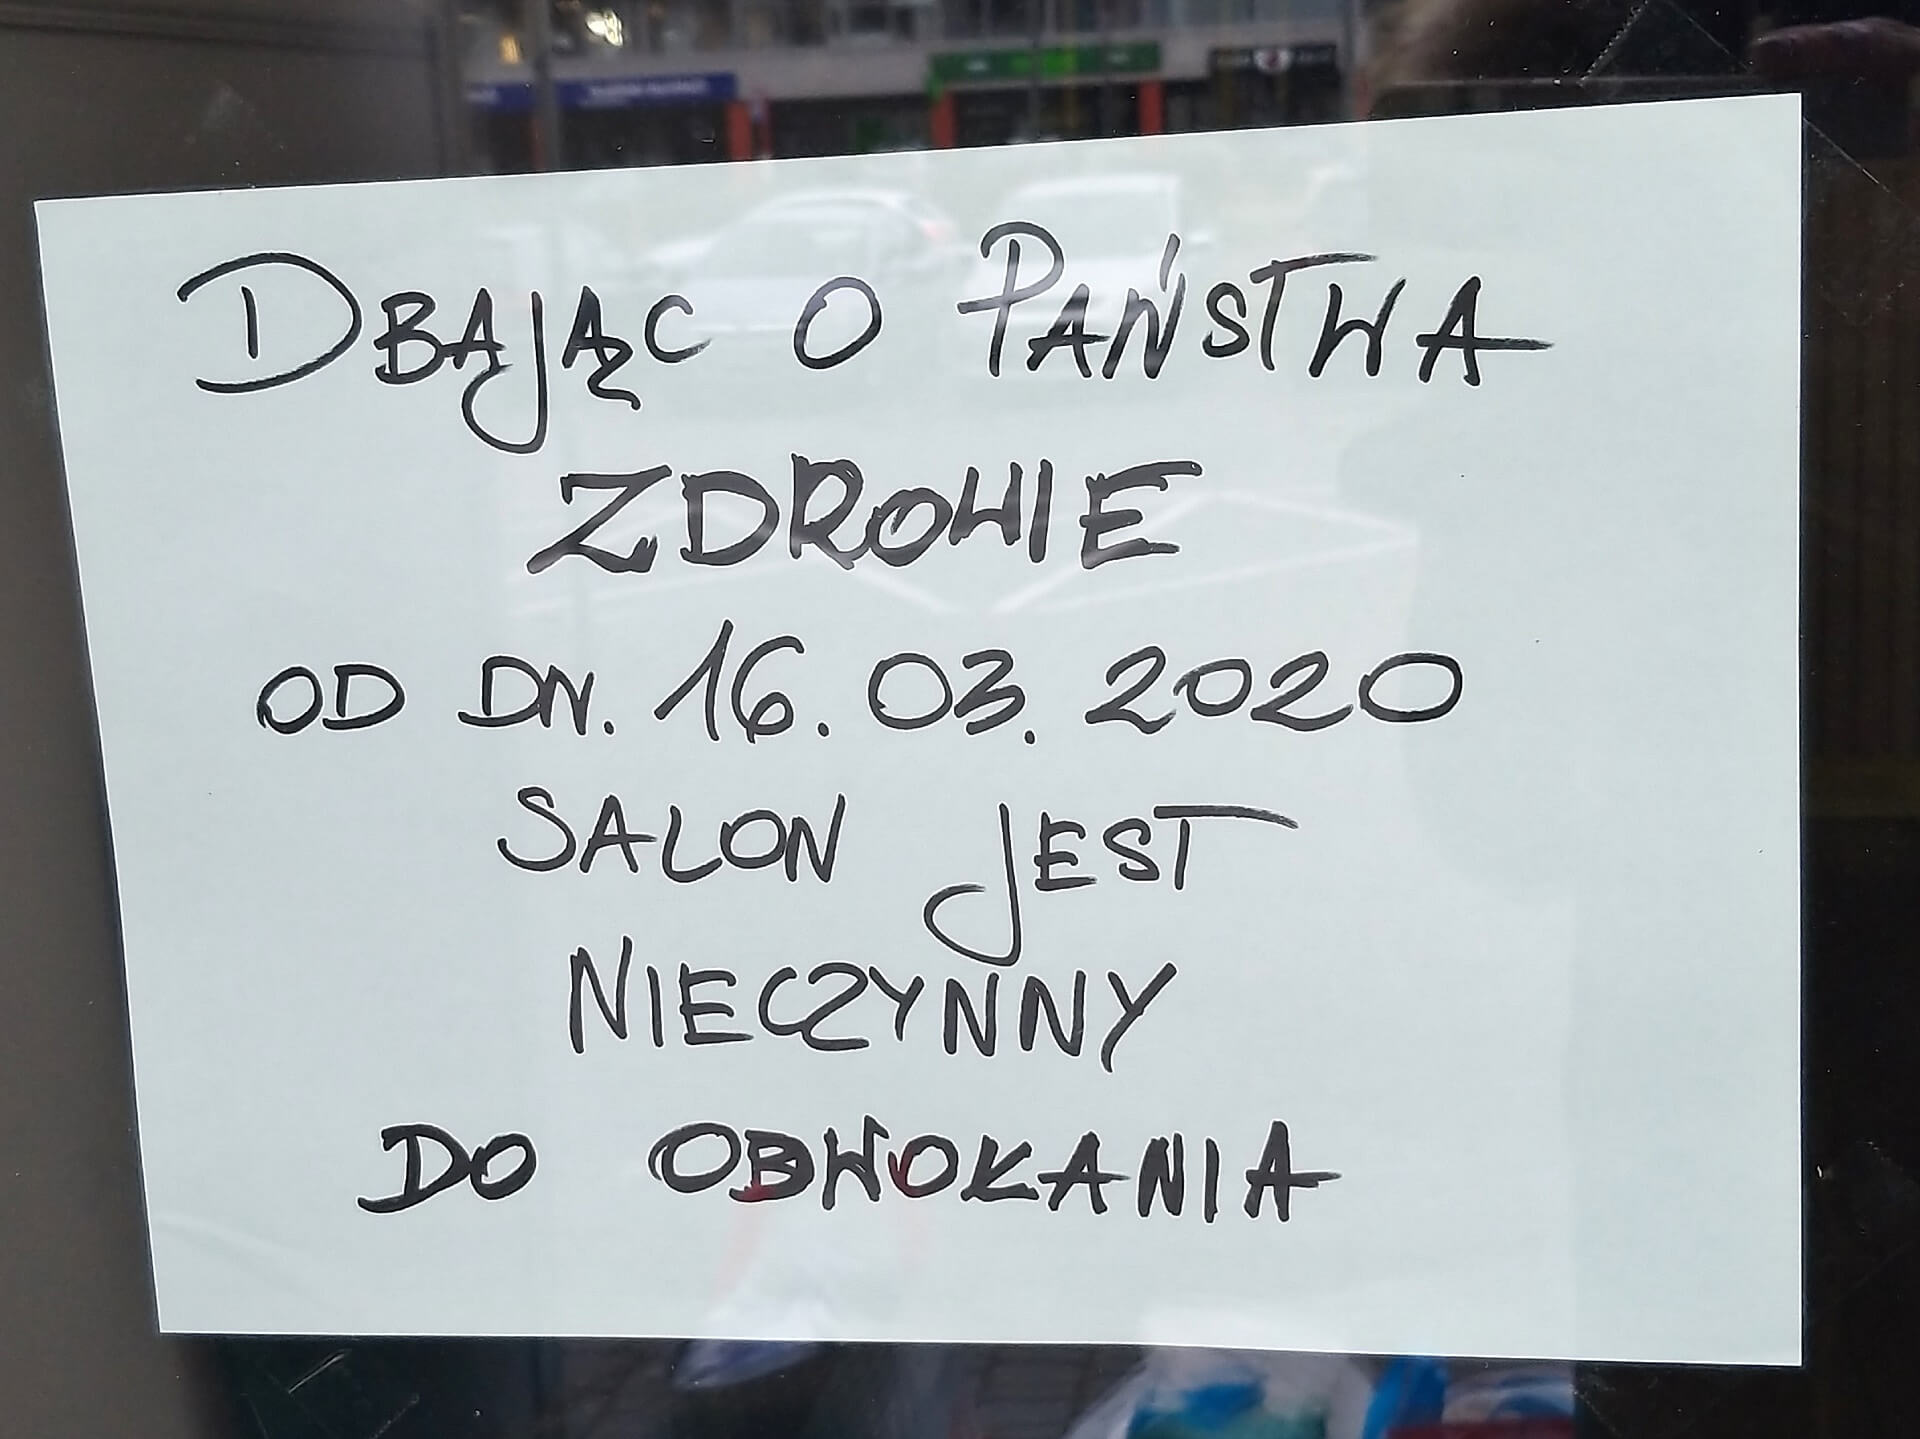 DBAJĄC O PAŃSTWA
ZDROWIE
OD DN. 16.03.2020
SALON JEST
NIECZYNNY
DO ODWOŁANIA